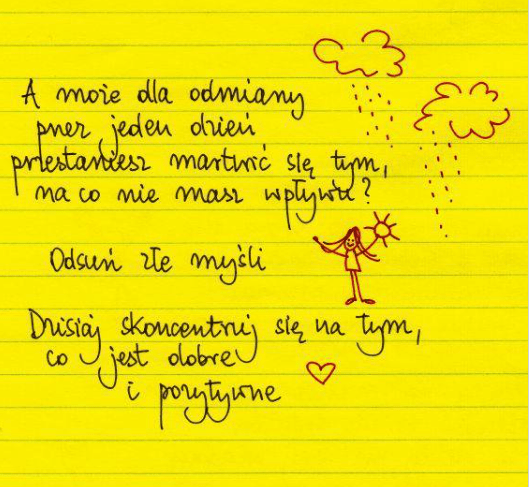 A może dla odmiany
przez jeden dzień
przestaniesz martwić się tym,
na co nie masz wpływu?
Odsuń złe myśli
Dzisiaj skoncentruj się na tym,
co jest dobre
i pozytywne